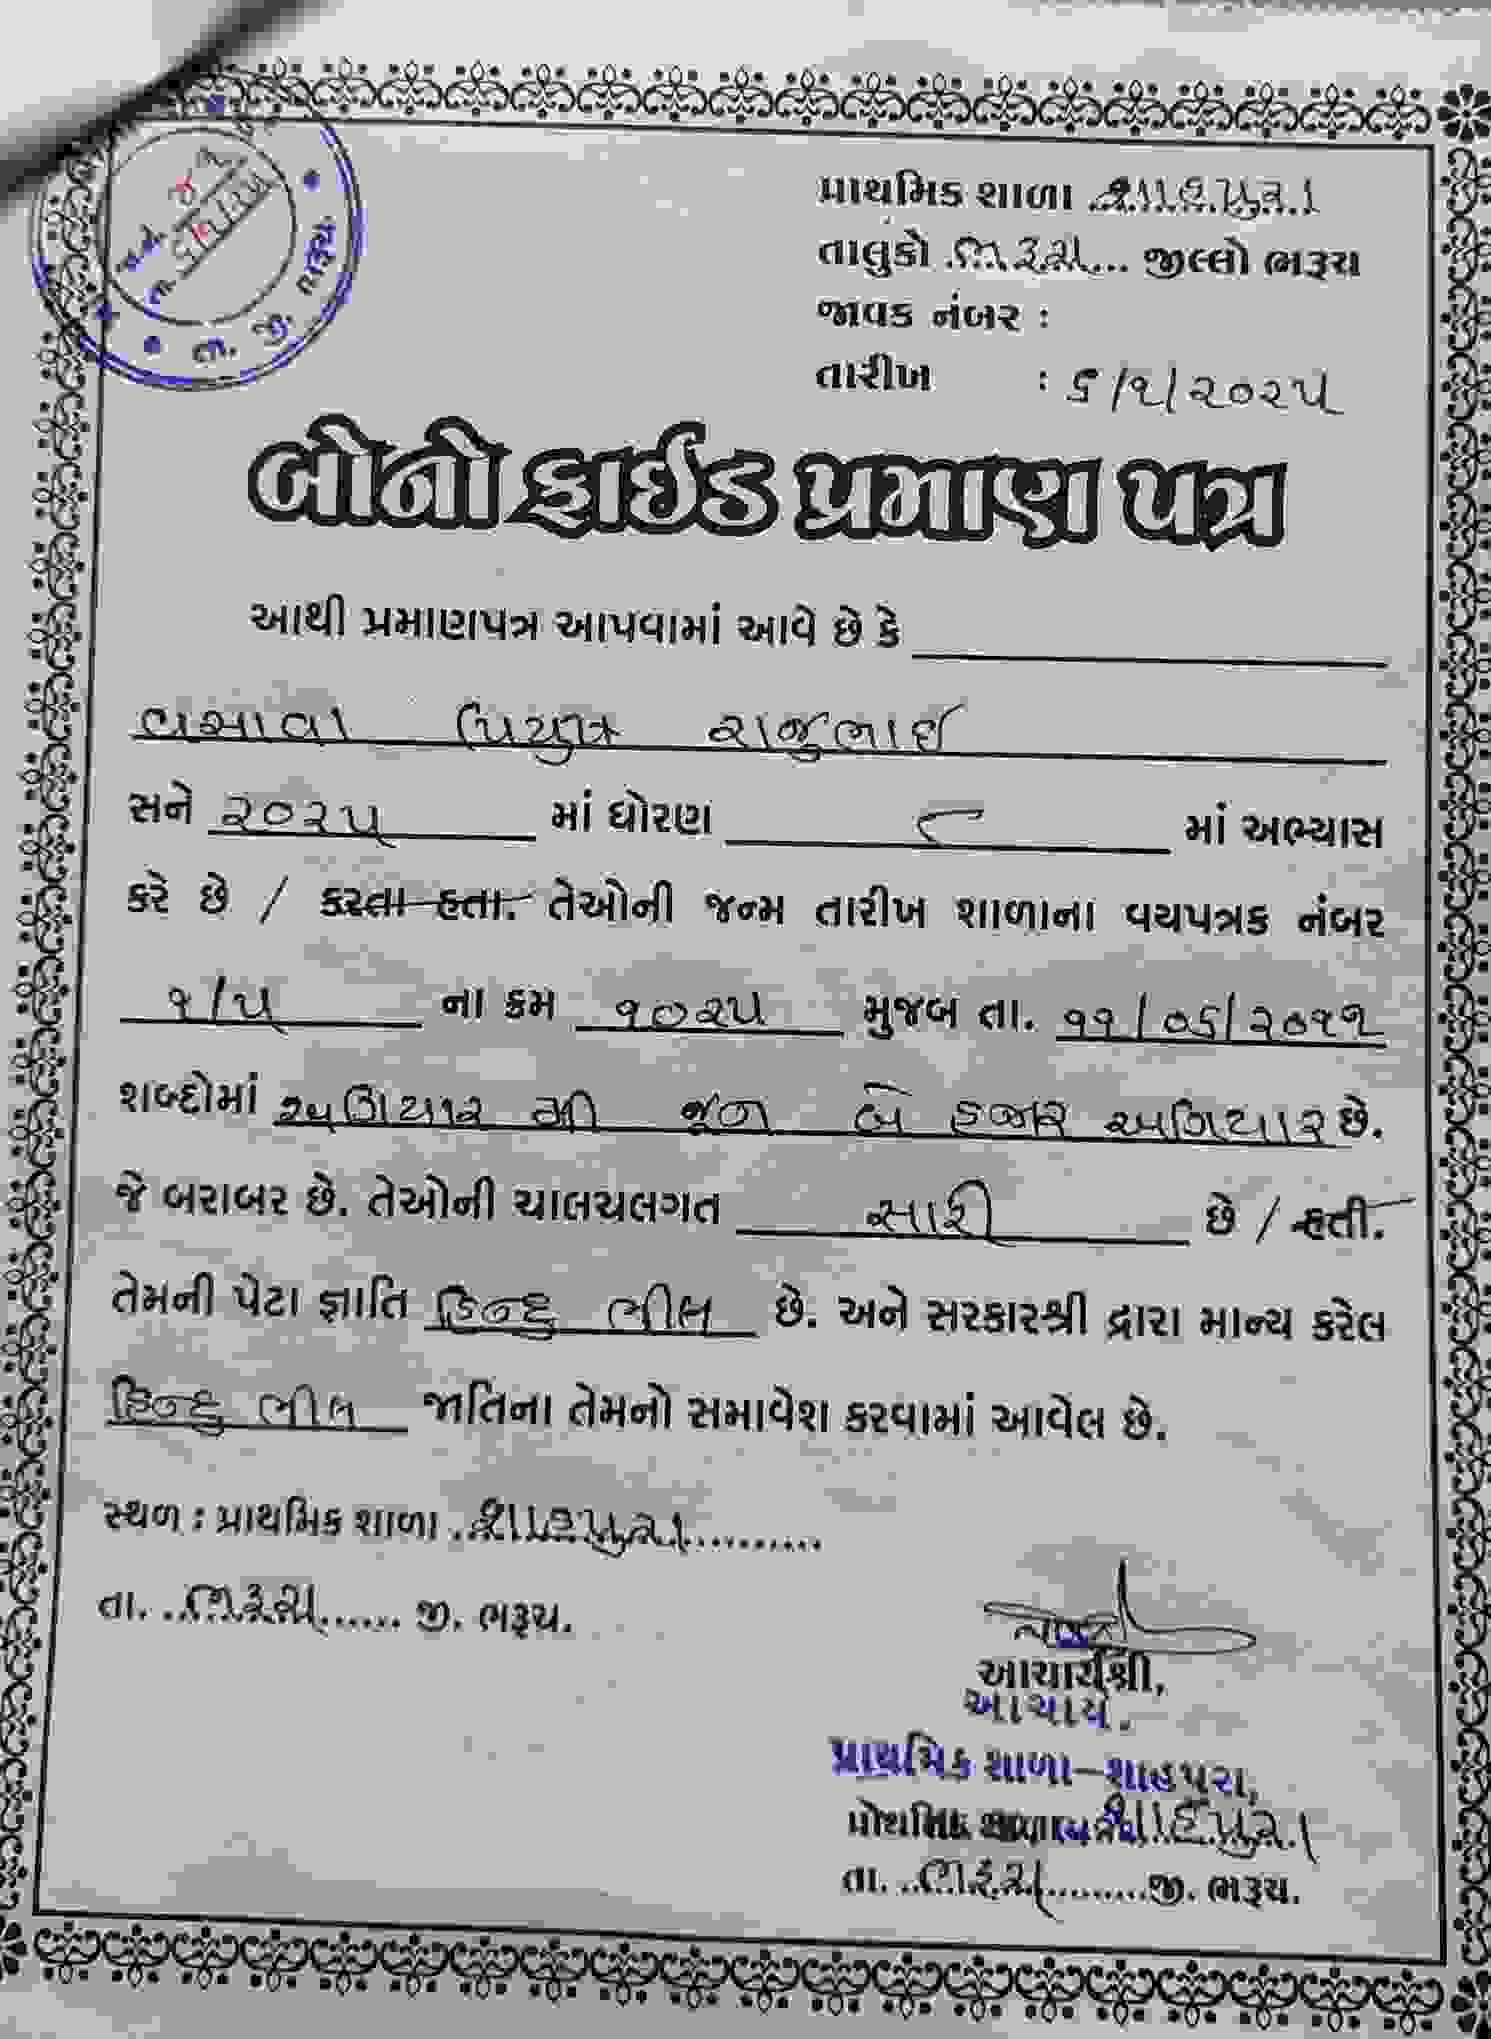 પ્રાથમિક શાળા શાહપુરા
તાલુકો ભરૂચ જીલ્લો ભરૂચ
જાવક નંબર :
તારીખ : ૬/૧/૨૦૨૫
તા. જી. ભરૂચ
બોનો ફાઈડ પ્રમાણ પત્ર
આથી પ્રમાણપત્ર આપવામાં આવે છે કે
વસાવા પિયુષ રાજુભાઈ
સને ૨૦૨૫ માં ધોરણ ૮ માં અભ્યાસ
કરે છે / કરતા હતા. તેઓની જન્મ તારીખ શાળાના વયપત્રક નંબર
૧/૫ ના ક્રમ ૧૦૨૫ મુજબ તા. ૧૧/૦૬/૨૦૧૧
શબ્દોમાં અગિયાર મી જૂન બે હજાર અગિયાર છે.
જે બરાબર છે. તેઓની ચાલચલગત સારી છે / હતી.
તેમની પેટા જ્ઞાતિ હિન્દુ ભીલ છે. અને સરકારશ્રી દ્વારા માન્ય કરેલ
હિન્દુ ભીલ જાતિના તેમનો સમાવેશ કરવામાં આવેલ છે.
સ્થળ : પ્રાથમિક શાળા શાહપુરા
તા. ભરૂચ જી. ભરૂચ.
આચાર્યશ્રી,
આચાર્ય.
પ્રાથમિક શાળા-શાહપુરા,
પ્રાથમિક શાળા શાહપુરા
તા. ભરૂચ જી. ભરૂચ.